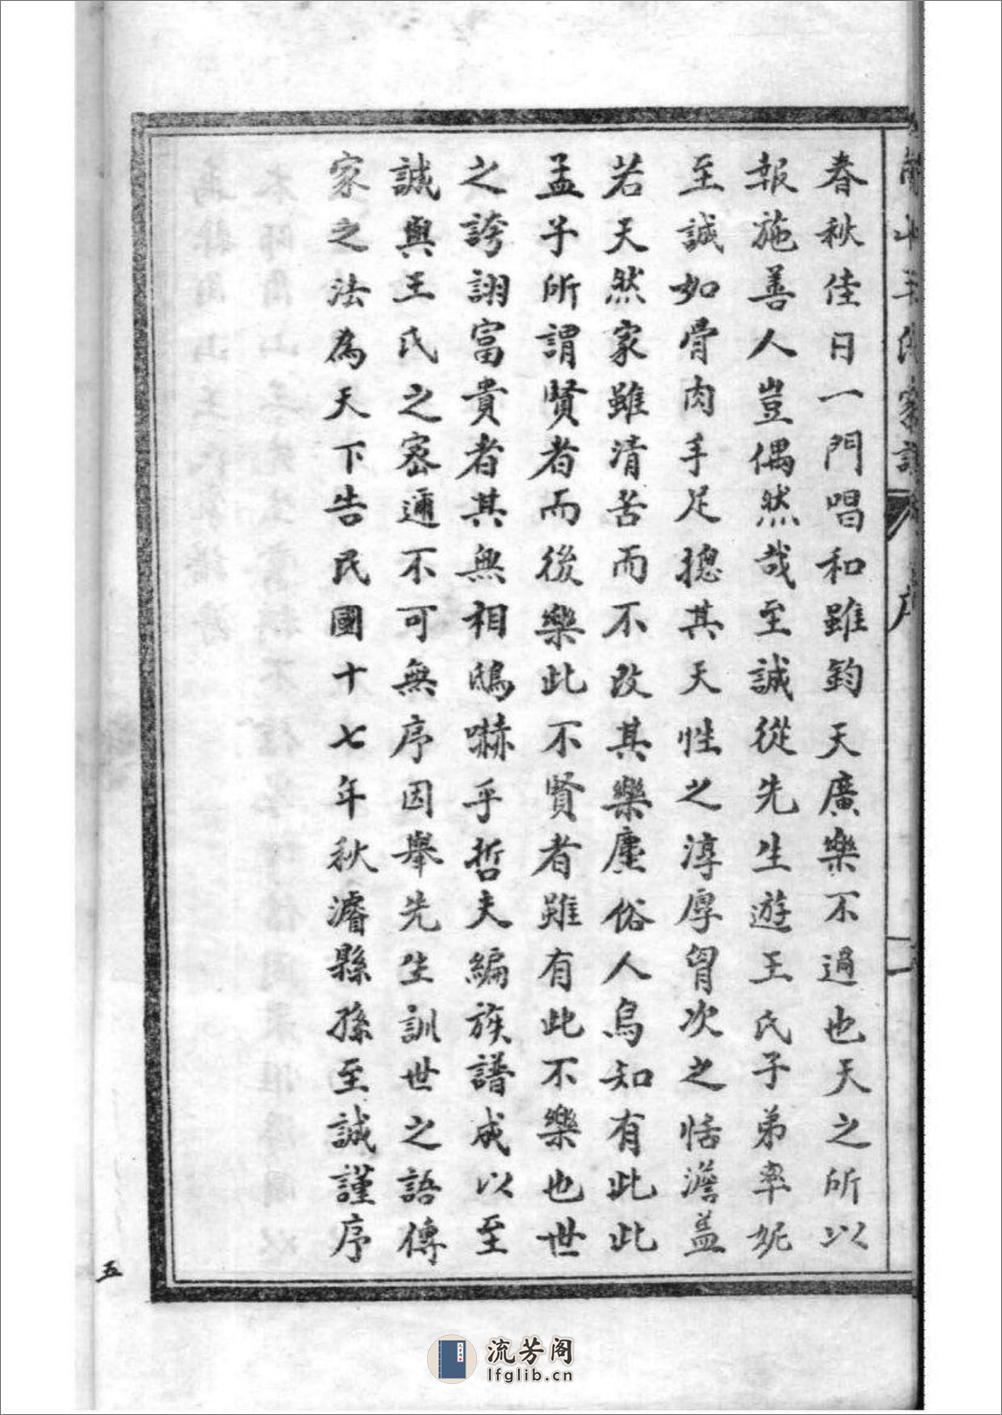 春秋佳日一門唱和雖鈞天廣樂不過也天之所以
報施善人豈偶然哉至誠從先生遊王氏子弟率妮
至誠如骨肉手足摠其天性之淳厚胷次之恬澹益
若天然家雖清苦而不改其樂塵俗人烏知有此此
孟子所謂賢者而後樂此不賢者雖有此不樂也世
之誇詡富貴者其無相鴟嚇乎哲夫編族譜成以至
誠與王氏之密邇不可無序因舉先生訓世之語傳
家之法為天下告民國十七年秋濬縣孫至誠謹序
五
流芳阁
lfglib.cn